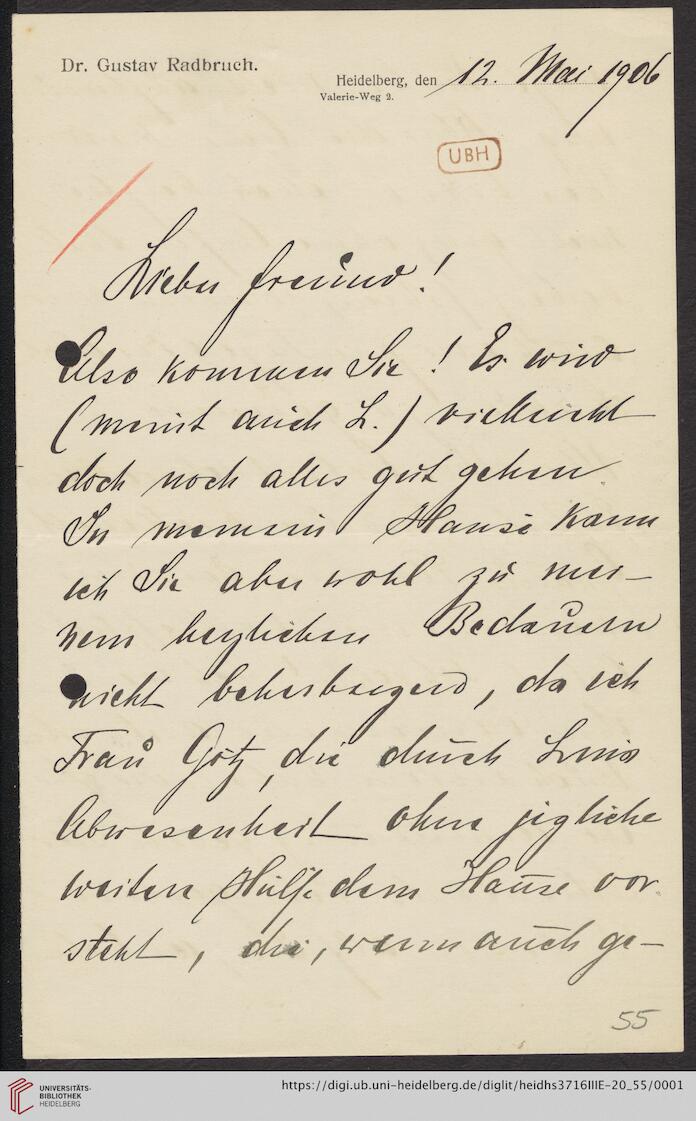 Dr. Gustav Radbruch.
Heidelberg, den 12. Mai 1906
Valerie-Weg 2.
UBH
Lieber Freund!
Also kommen Sie! Es wird
(meint auch L.) vielleicht
doch noch alles gut gehen.
In meinem Hause kann
ich Sie aber wohl zu mei-
nem herzlichen Bedauern
nicht beherbergen, da ich
Frau Götz, die durch
Abwesenheit ohne jegliche
weitere Hülfe dem Hause vor-
steht, die, wenn auch ge-
55
UNIVERSITÄTS-
BIBLIOTHEK
HEIDELBERG
https://digi.ub.uni-heidelberg.de/diglit/heidhs3716IIIE-20_55/0001